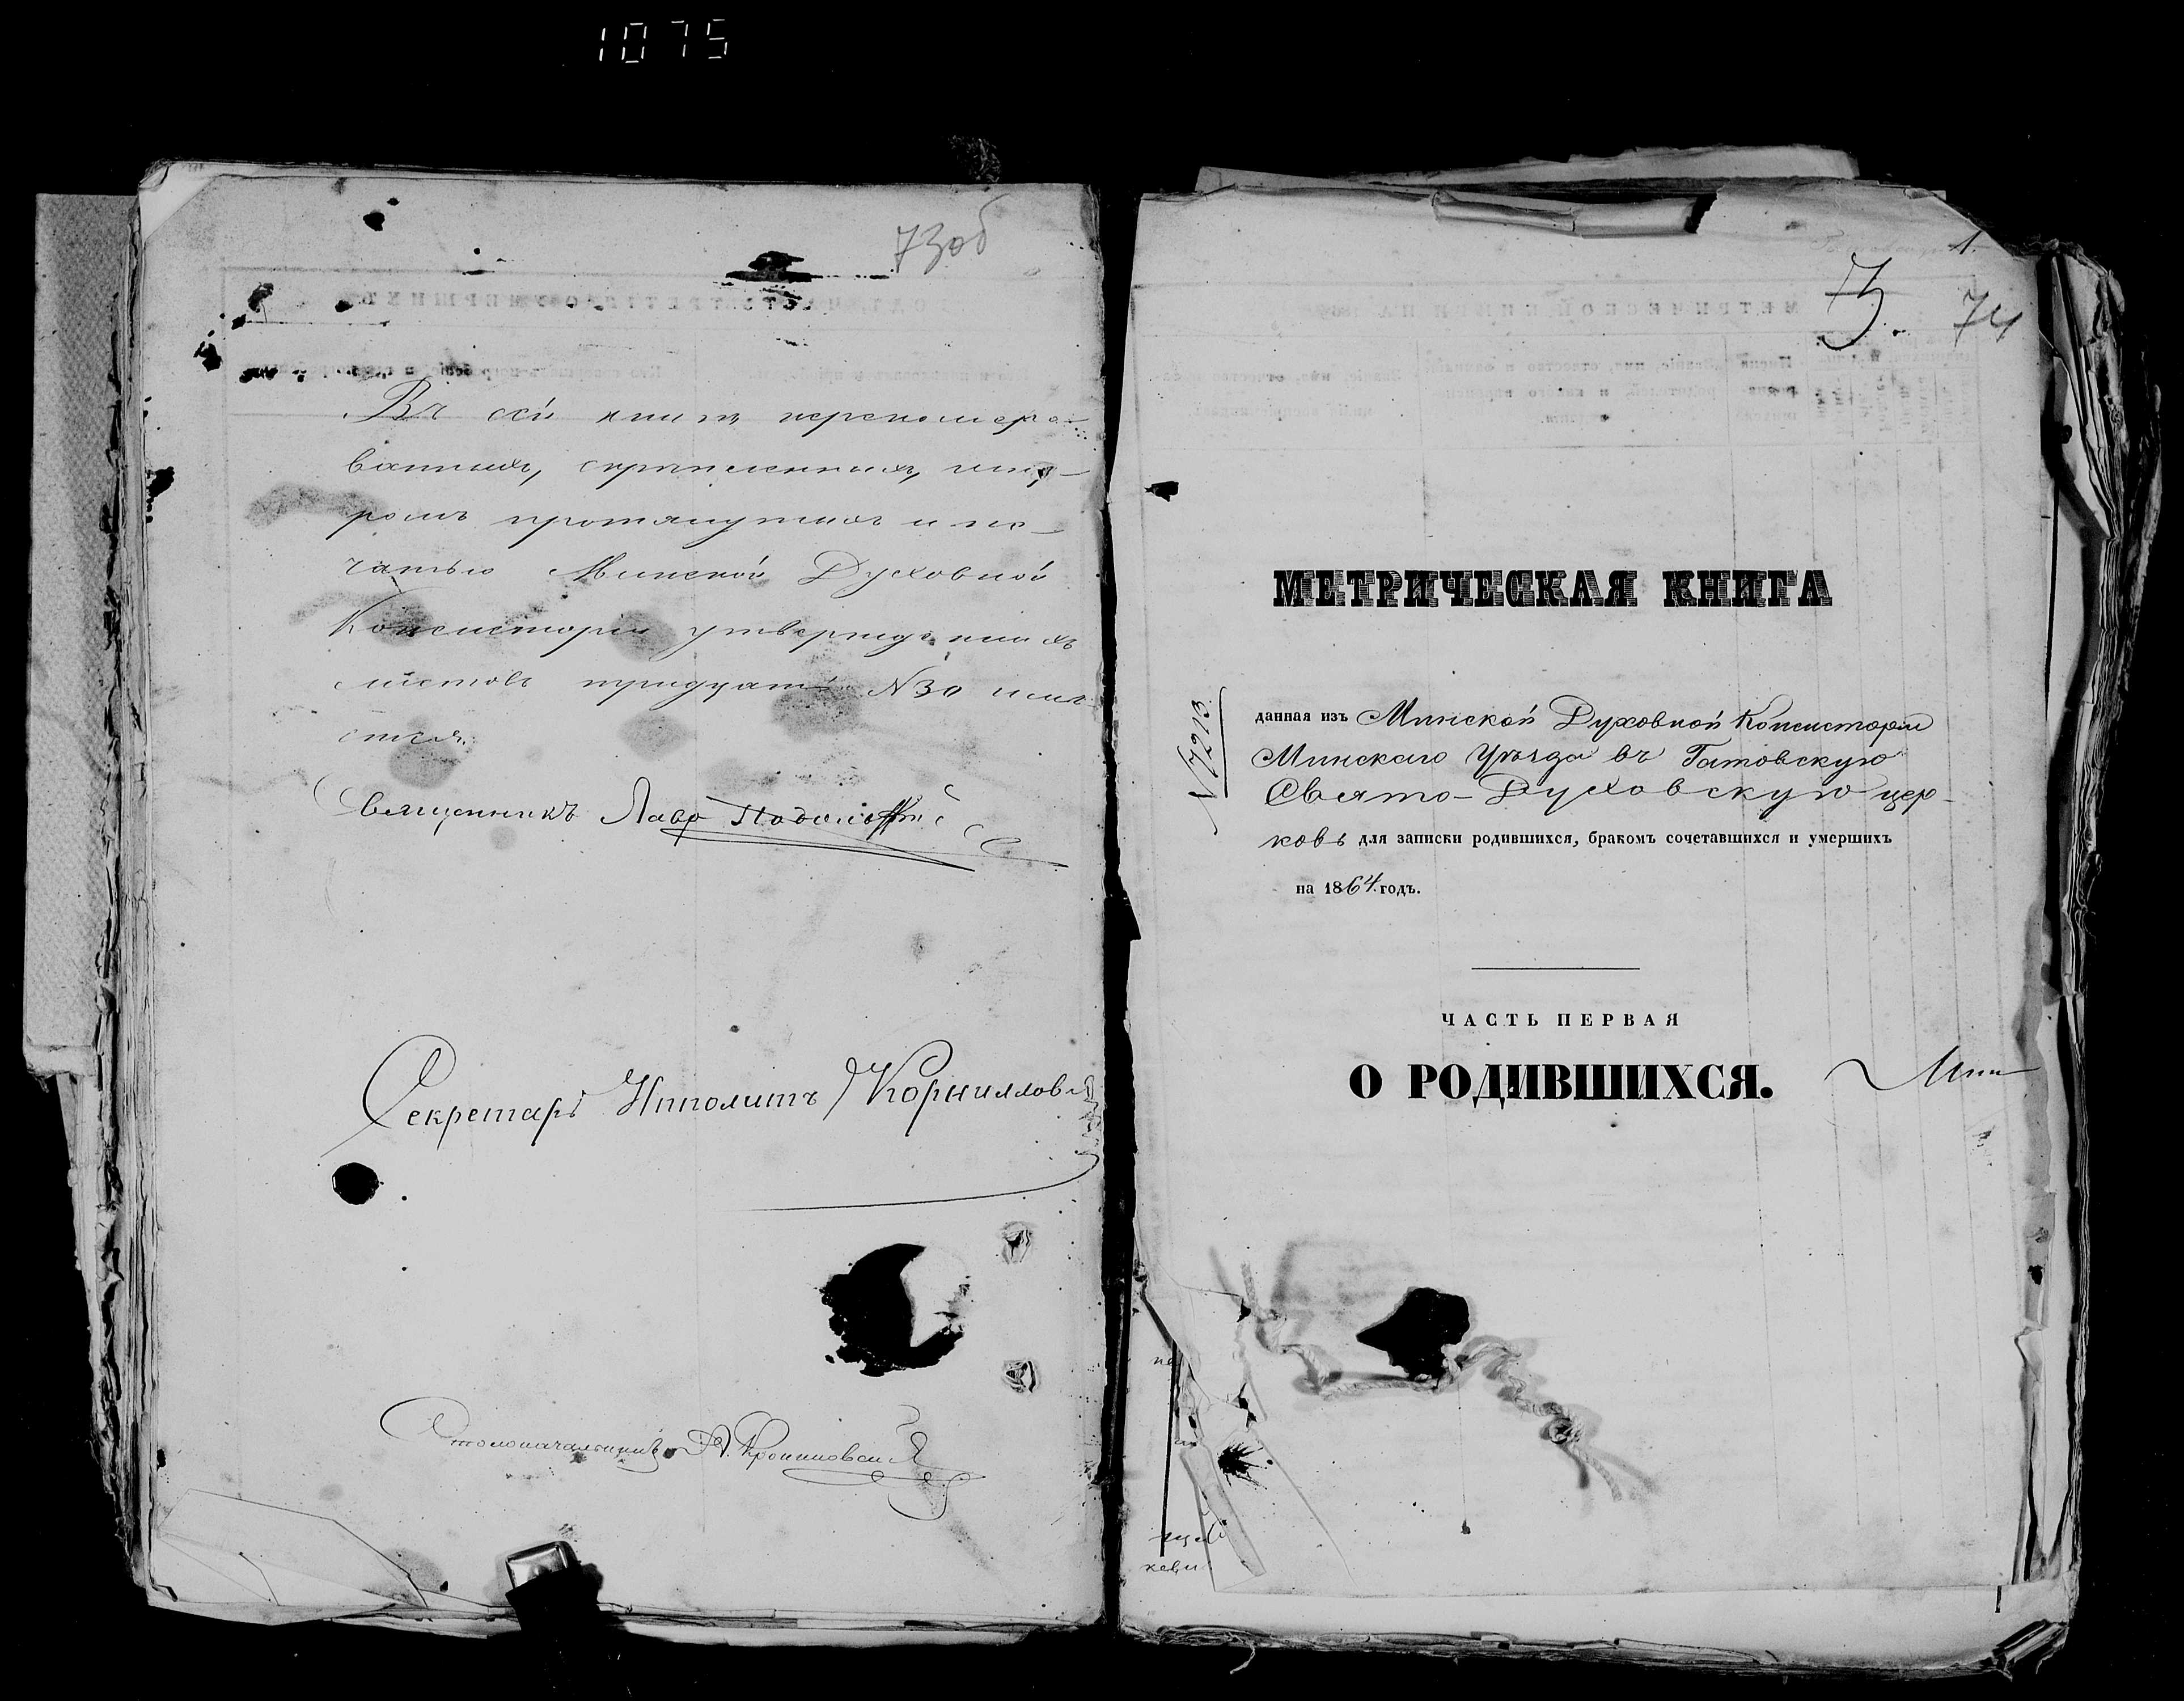 1075
73об
Въ сей книгѣ перенумеро-
ванныхъ, скрѣпленныхъ, шну-
ромъ протянутыхъ и пе-
чатью Минской Духовной
Консисторіи утвержденныхъ
листовъ тридцать №30 имѣ-
ется.
Священникъ Лавр
Секретарь Ипполитъ Корниллов
Столоначальникъ
1.
3.
74
МЕТРИЧЕСКАЯ КНИГА
N7213
данная изъ Минской Духовной Консисторіи
Минскаго Уѣзда въ Гатовскую
Свято-Духовскую цер-
ковь для записки родившихся, бракомъ сочетавшихся и умершихъ
на 1864 годъ.
ЧАСТЬ ПЕРВАЯ
О РОДИВШИХСЯ.
Мин